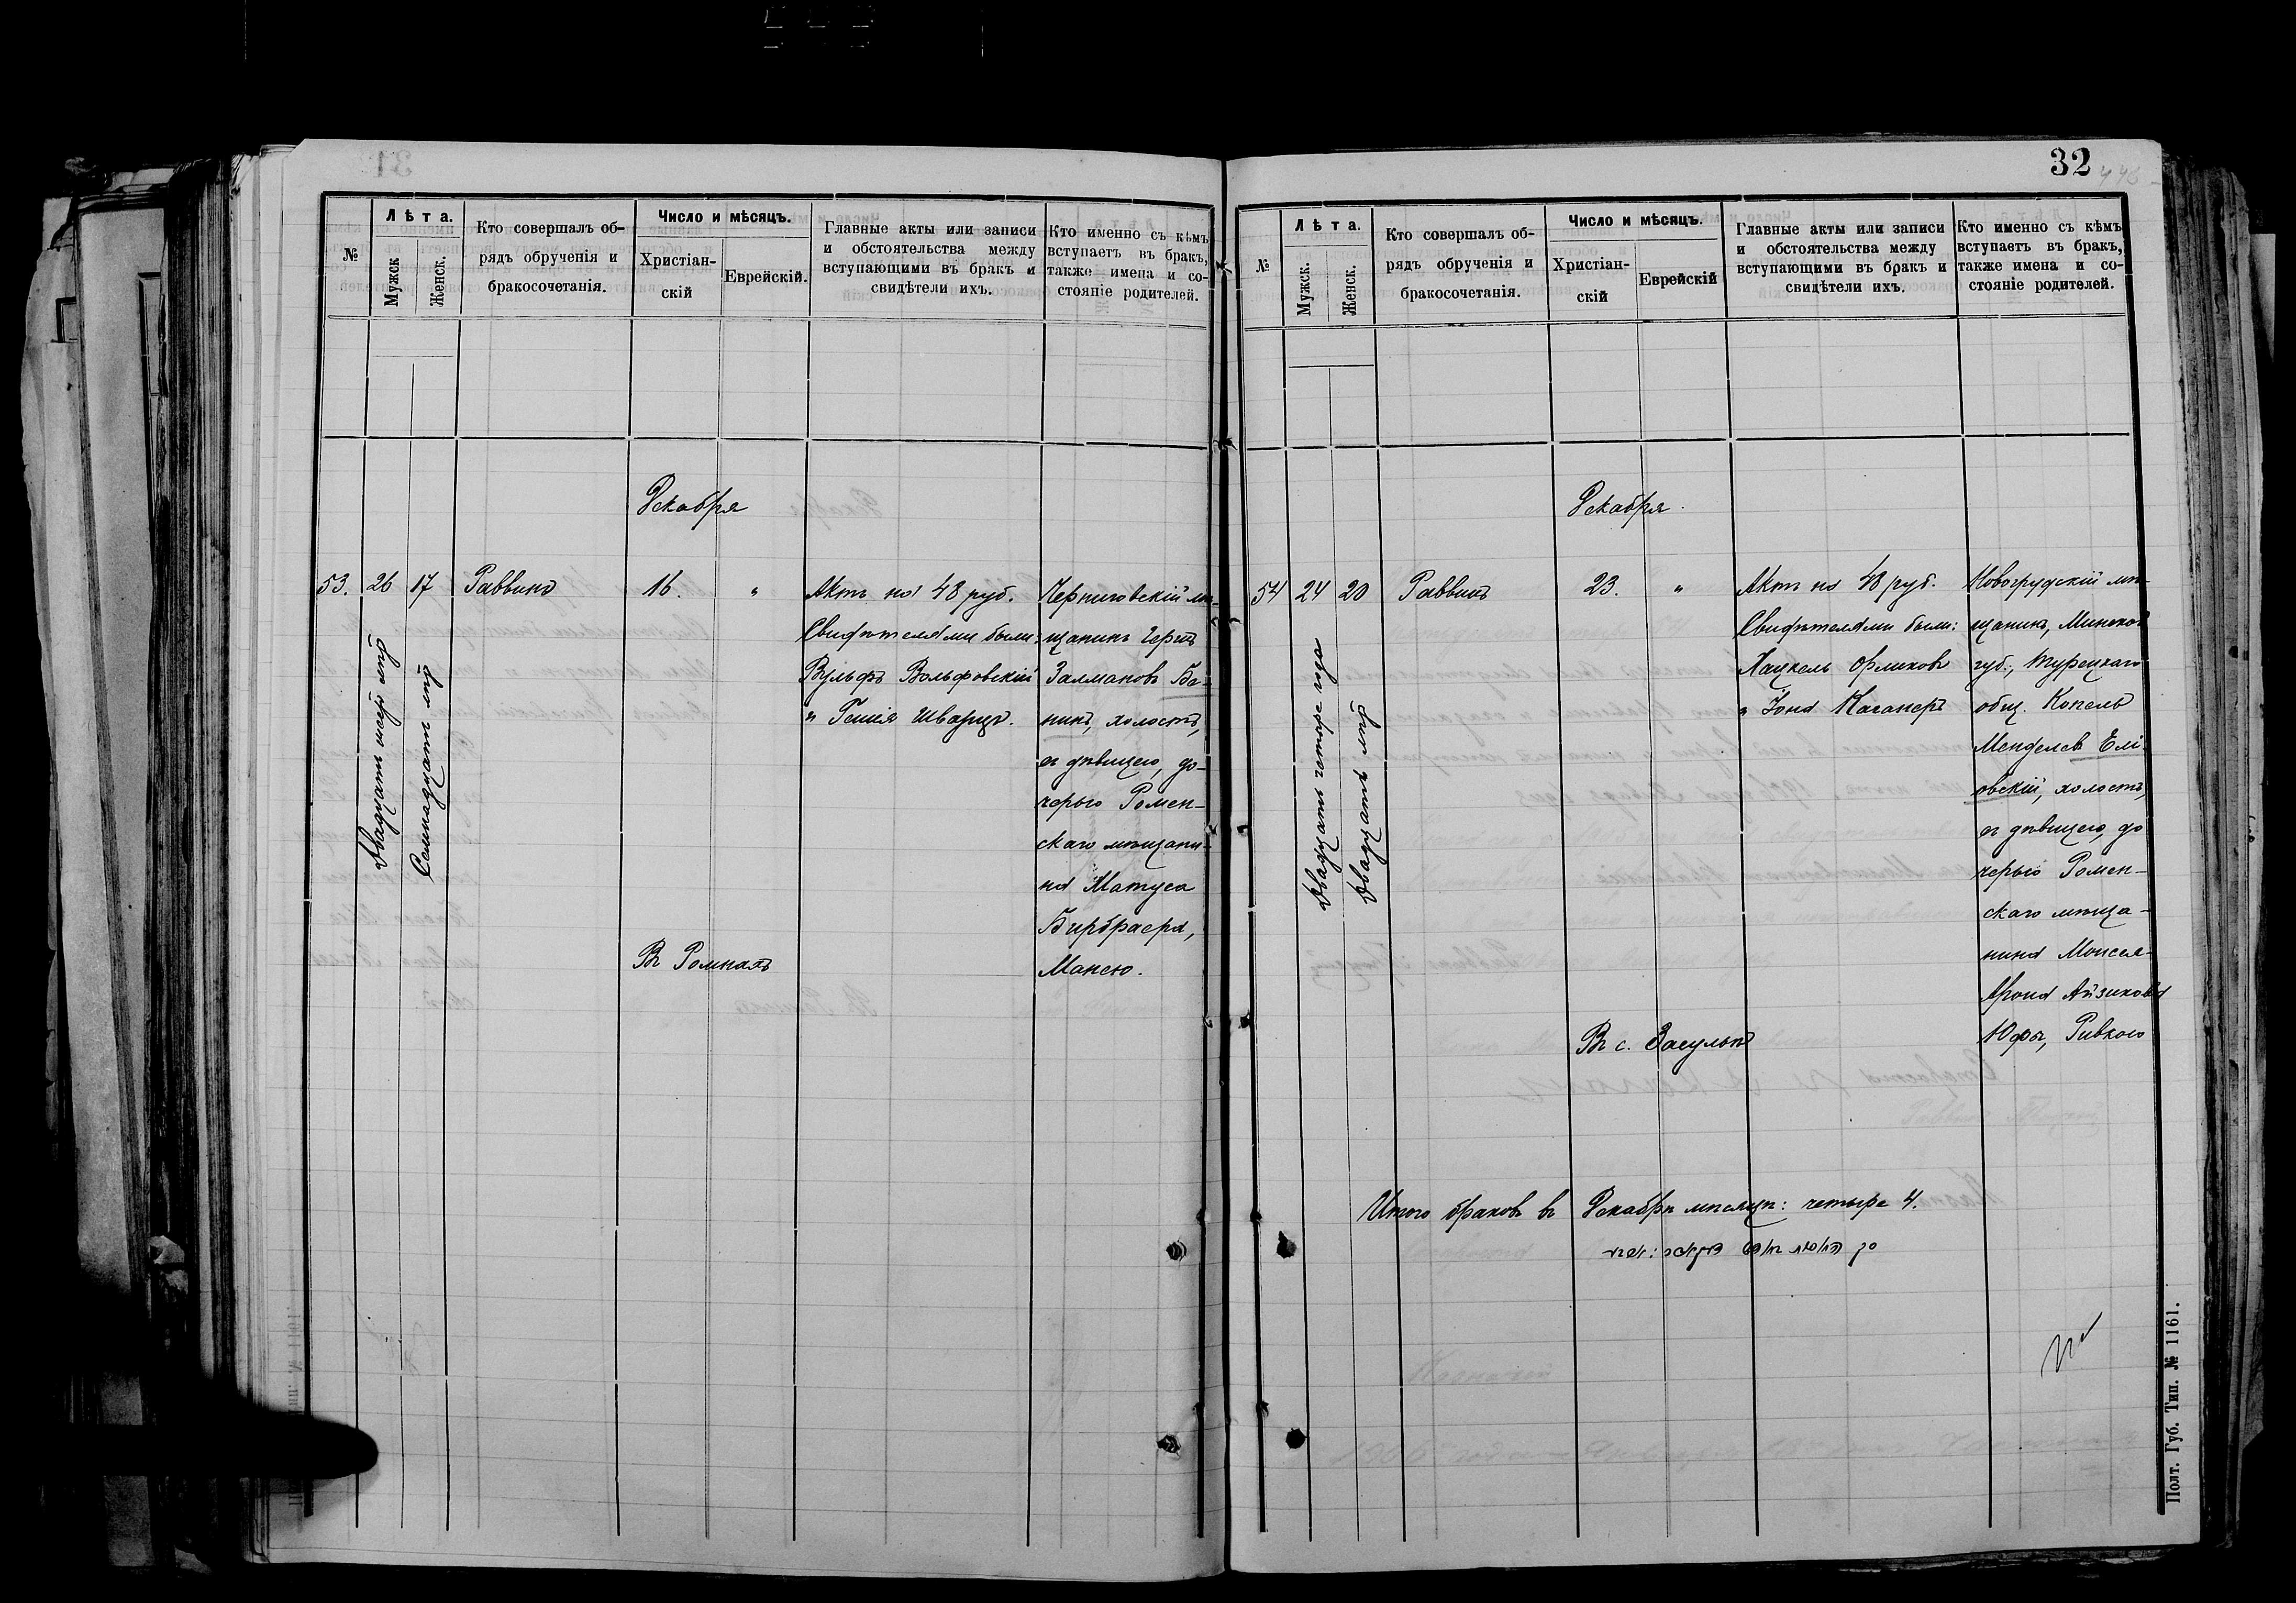 №
Лѣта.
Мужск
Женск.
Кто совершалъ об-
рядъ обрученія и
бракосочетанія.
Число и мѣсяцъ.
Христіан-
скій
Еврейскій.
Главные акты или записи
и обстоятельства между
вступающими въ бракъ и
свидѣтели ихъ.
Кто именно съ кѣмъ
вступаетъ въ бракъ,
также имена и со-
стояніе родителей.
Декабря
53.
26
17
Двадцать шесть лѣтъ
Семнадцать лѣтъ
Раввинъ
16.
"
Въ Ромнахъ
Актъ на 48 руб.
Свидѣтелями были:
Вульфъ Вольфовскій
" Гешія Шварцъ.
Черниговскій мѣ-
щанинъ Герцъ
Залмановъ Ба-
нинъ, холостъ,
съ дѣвицею, до-
черью Ромен-
скаго мѣщани-
на Матуса
Бирбраера,
Манею.
32
№
Лѣта.
Мужск.
Женск.
Кто совершалъ об-
рядъ обрученія и
бракосочетанія.
Число и мѣсяцъ.
Христіан-
скій
Еврейскій
Главные акты или записи
и обстоятельства между
вступающими въ бракъ и
свидѣтели ихъ.
Кто именно съ кѣмъ
вступаетъ въ бракъ,
также имена и со-
стояніе родителей.
Декабря.
54
24
20
Двадцать четыре года
Двадцать лѣтъ
Раввинъ
23.
"
Въ с. Засульѣ
Актъ на 48 руб.
Свидѣтелями были:
Хацкель Орликовъ
" Іона Каганеръ
Новогрудскій мѣ-
щанинъ, Минской
губ., Турецкаго
общ. Копель
Менделевъ Елі-
овскій, холостъ,
съ дѣвицею, до
черью Ромен-
скаго мѣща-
нина Моисея-
Арона Айзикова
Юфы, Ривкою
Итого браковъ въ Декабрѣ мѣсяцѣ: четыре 4.
Полт. Губ. Тип. № 1161.